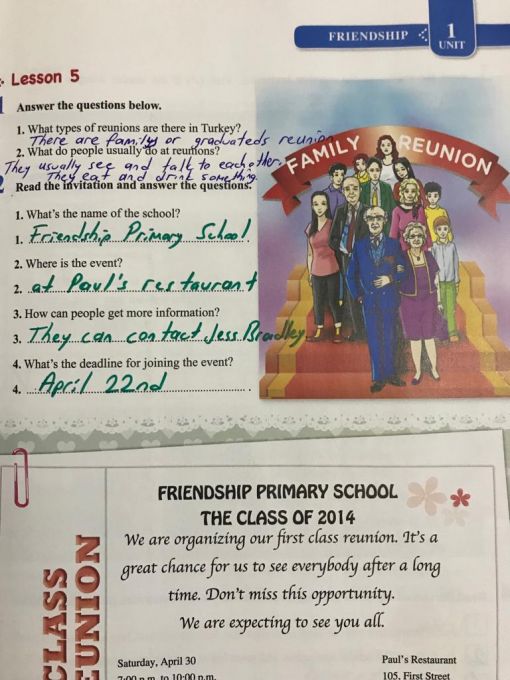 FRIENDSHIP
1
UNIT
Lesson 5
Answer the questions below.
1. What types of reunions are there in Turkey?
There are family or graduateds reunion
2. What do people usually do at reunions?
They usually see and talk to each other.
They eat and drink something.
2 Read the invitation and answer the questions.
1. What's the name of the school?
1. Friendship Primary School.
2. Where is the event?
2. at Paul's restaurant
3. How can people get more information?
3. They can contact Jess Bradley
4. What's the deadline for joining the event?
4. April 22nd
FAMILY REUNION
CLASS
REUNION
FRIENDSHIP PRIMARY SCHOOL
THE CLASS OF 2014
We are organizing our first class reunion. It's a
great chance for us to see everybody after a long
time. Don't miss this opportunity.
We are expecting to see you all.
Saturday, April 30
7:00 p.m. to 10:00 p.m.
Paul's Restaurant
105, First Street